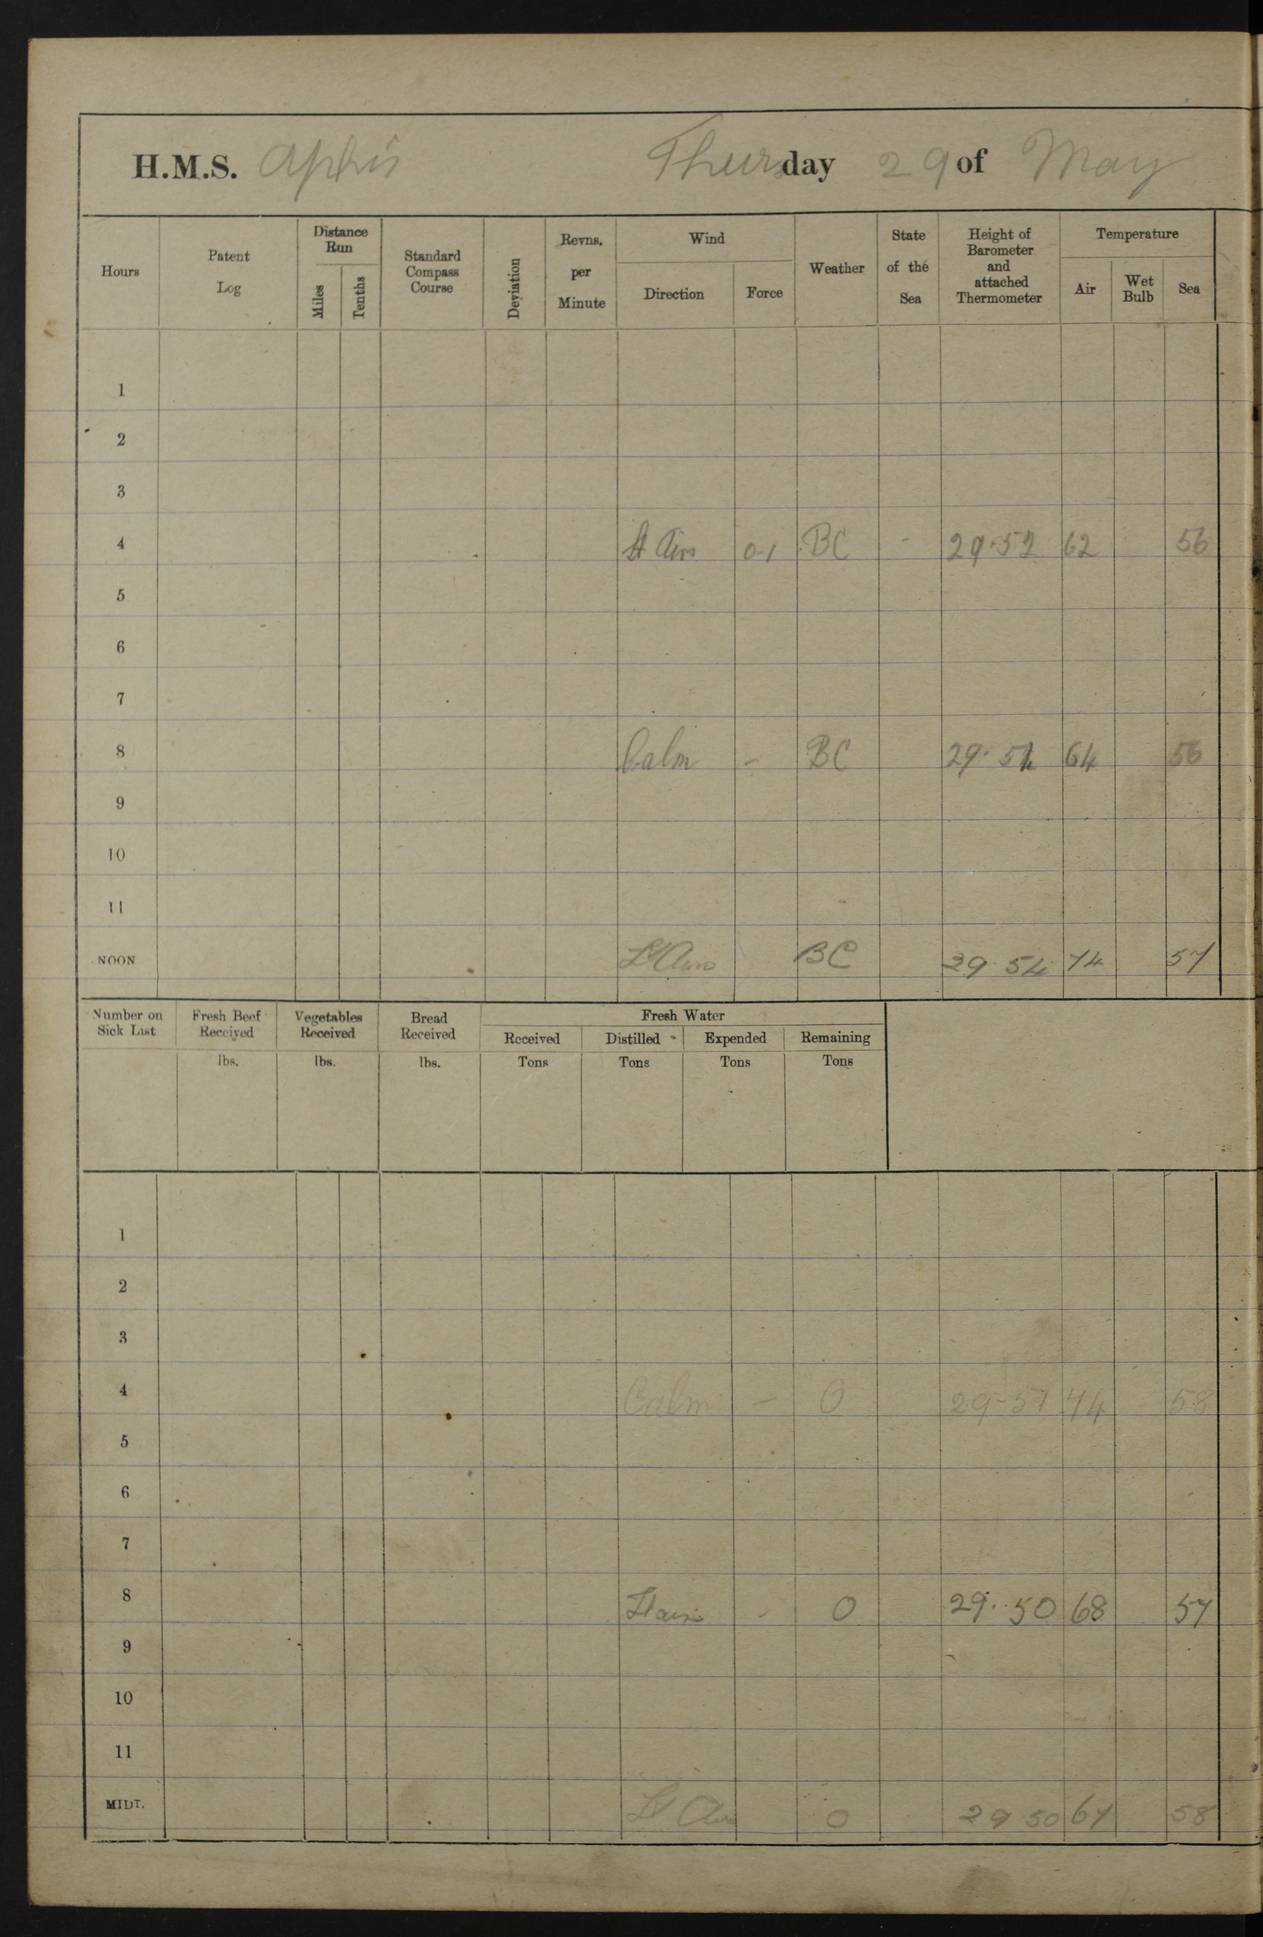 H.M.S. Aphis Thursday 29 of May
Hours Patent Log Distance Run Miles Tenths Standard Compass Course Deviation Revns. per Minute Wind Direction Force Weather State of the Sea Height of Barometer and attached Thermometer Temperature Air Wet Bulb Sea
1
2
3
4 Lt Airs 0-1 BC - 29.52 62 56
5
6
7
8 Calm - BC 29.54 64 56
9
10
11
NOON Lt Airs BC 29.54 74 57
Number on Sick List Fresh Beef Received lbs. Vegetables Received lbs. Bread Received lbs. Fresh Water Received Tons Distilled Tons Expended Tons Remaining Tons
1
2
3
4 Calm - O 29-51 74 58
5
6
7
8 Lt airs - O 29.50 68 57
9
10
11
MIDT. Lt Airs O 29 50 67 58